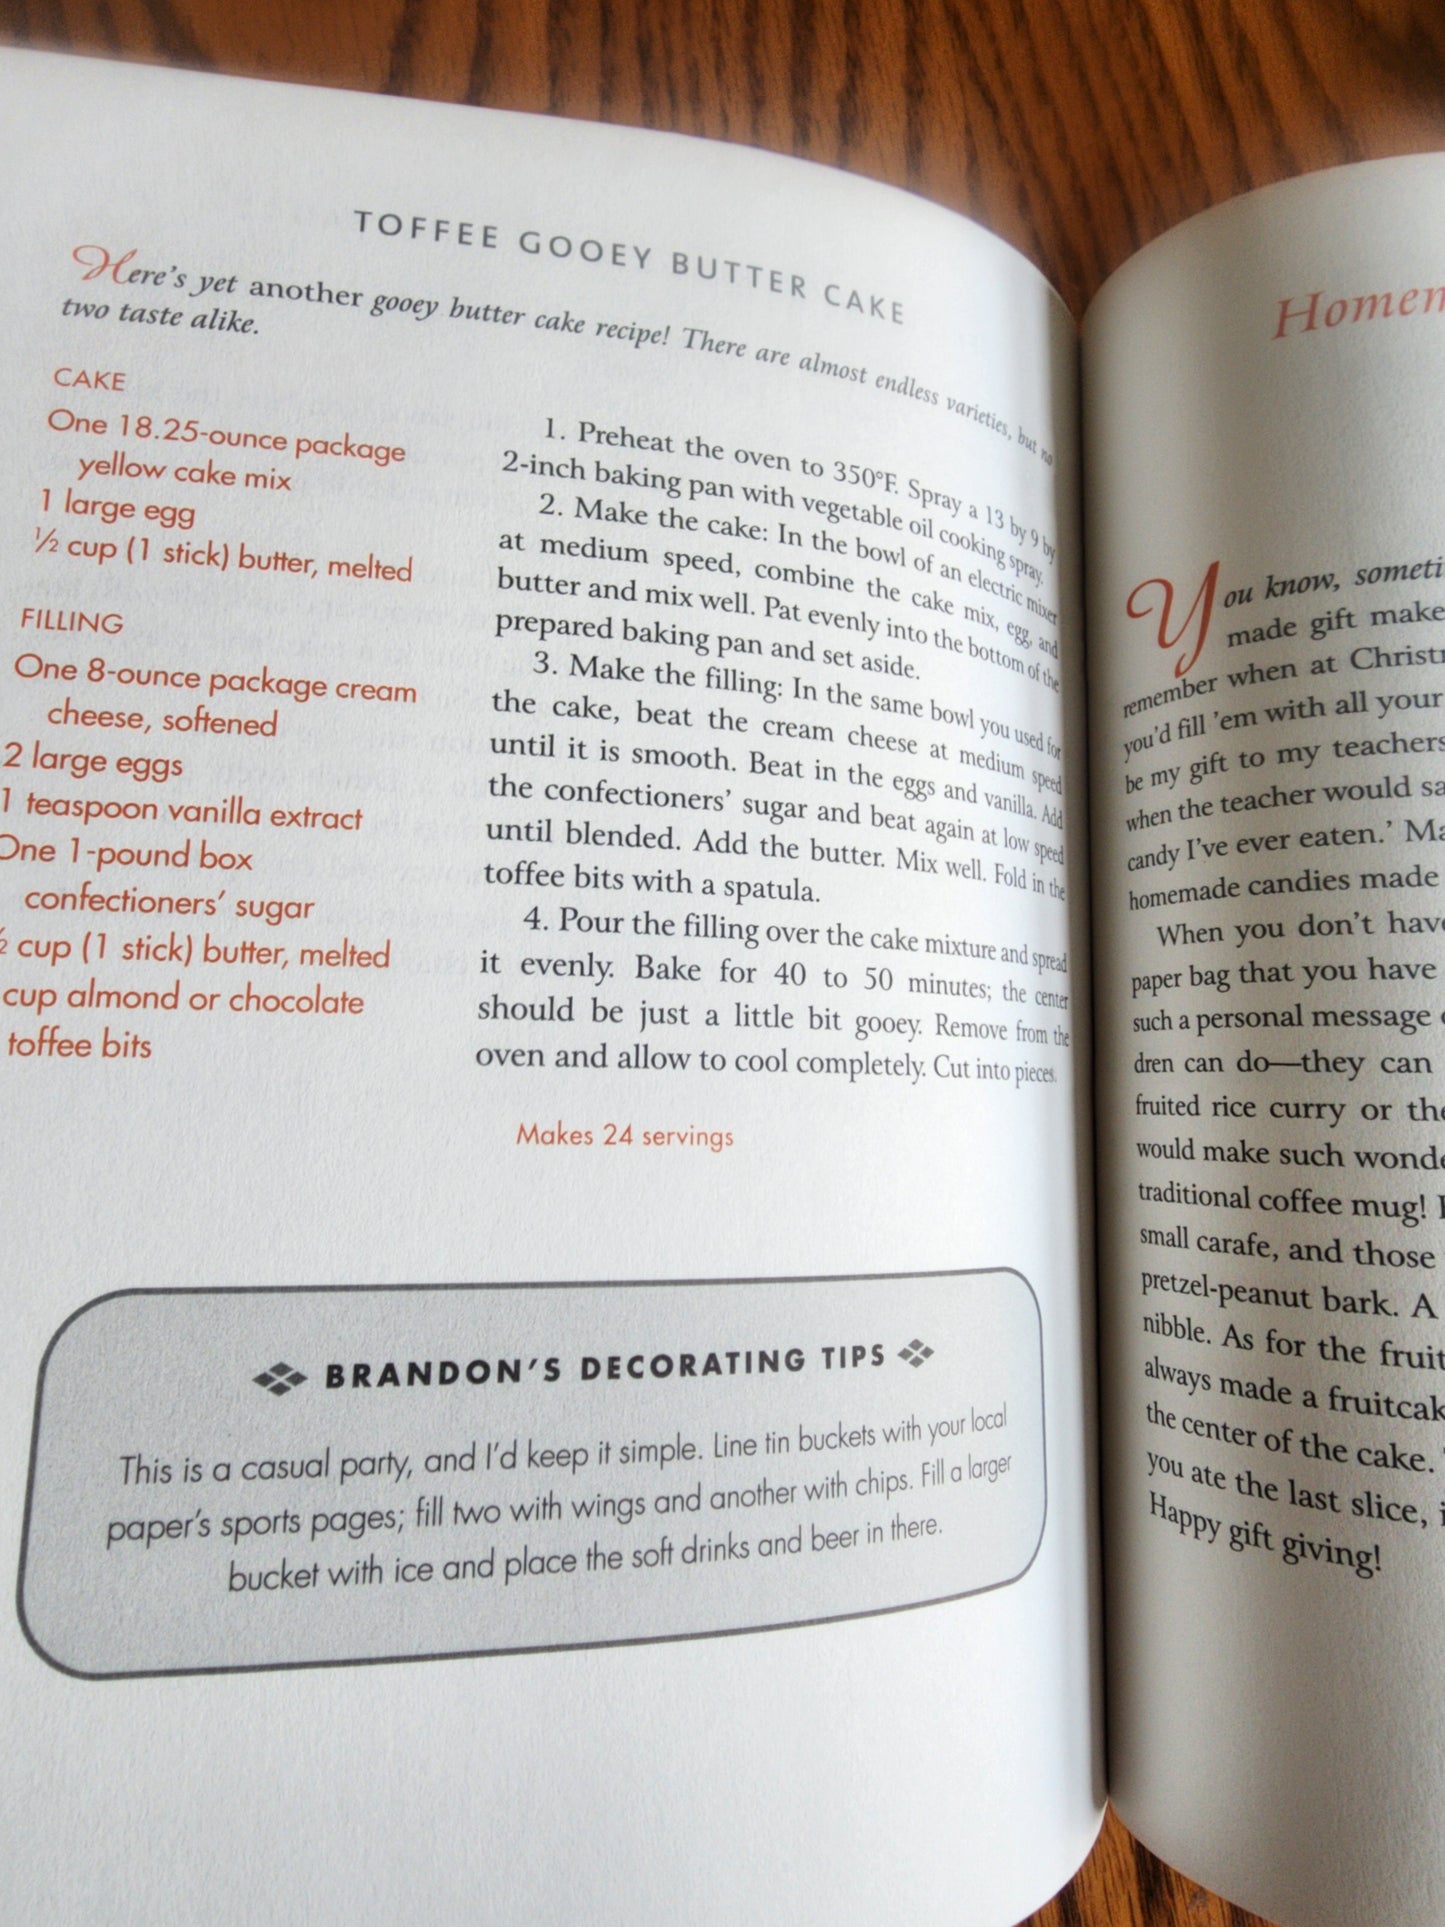 TOFFEE GOOEY BUTTER CAKE
Here's yet another gooey butter cake recipe! There are almost endless varieties, but no
two taste alike.
CAKE
One 18.25-ounce package
yellow cake mix
1 large egg
½ cup (1 stick) butter, melted
FILLING
One 8-ounce package cream
cheese, softened
2 large eggs
1 teaspoon vanilla extract
One 1-pound box
confectioners' sugar
½ cup (1 stick) butter, melted
cup almond or chocolate
toffee bits
1. Preheat the oven to 350°F. Spray a 13 by 9 by
2-inch baking pan with vegetable oil cooking spray.
2. Make the cake: In the bowl of an electric mixer
at medium speed, combine the cake mix, egg, and
butter and mix well. Pat evenly into the bottom of the
prepared baking pan and set aside.
3. Make the filling: In the same bowl you used for
the cake, beat the cream cheese at medium speed
until it is smooth. Beat in the eggs and vanilla. Add
the confectioners' sugar and beat again at low speed
until blended. Add the butter. Mix well. Fold in the
toffee bits with a spatula.
4. Pour the filling over the cake mixture and spread
it evenly. Bake for 40 to 50 minutes; the center
should be just a little bit gooey. Remove from the
oven and allow to cool completely. Cut into pieces.
Makes 24 servings
BRANDON'S DECORATING TIPS
This is a casual party, and I'd keep it simple. Line tin buckets with your local
paper's sports pages; fill two with wings and another with chips. Fill a larger
bucket with ice and place the soft drinks and beer in there.
You know,
made gift make
remember when at
you'd fill 'em with all your
be my gift to my teachers
when the teacher would
candy I've ever eaten.'
homemade candies made
When you don't
paper bag that you have
such a personal message
dren can do—they can
fruited rice curry or
would make such
traditional coffee mug!
small carafe, and those
pretzel-peanut bark. A
nibble. As for the
always made a
the center of the cake.
you ate the last slice,
Happy gift giving!